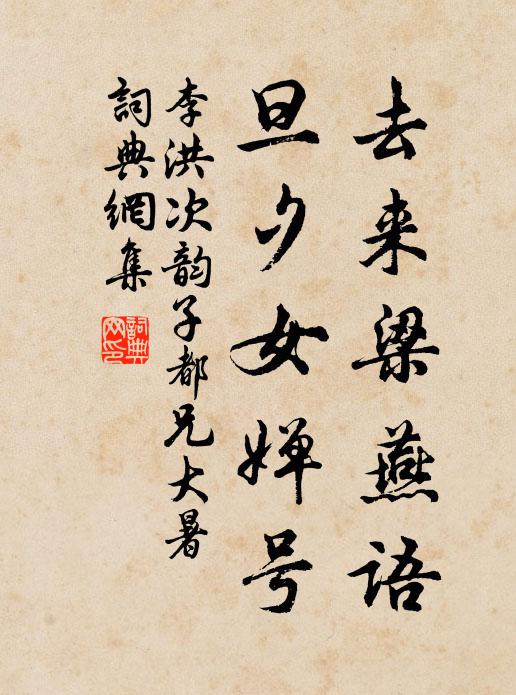 去来梁燕语
旦夕女婵号
李洪次韵子都兄大暑
詞典網集
詞典
网印